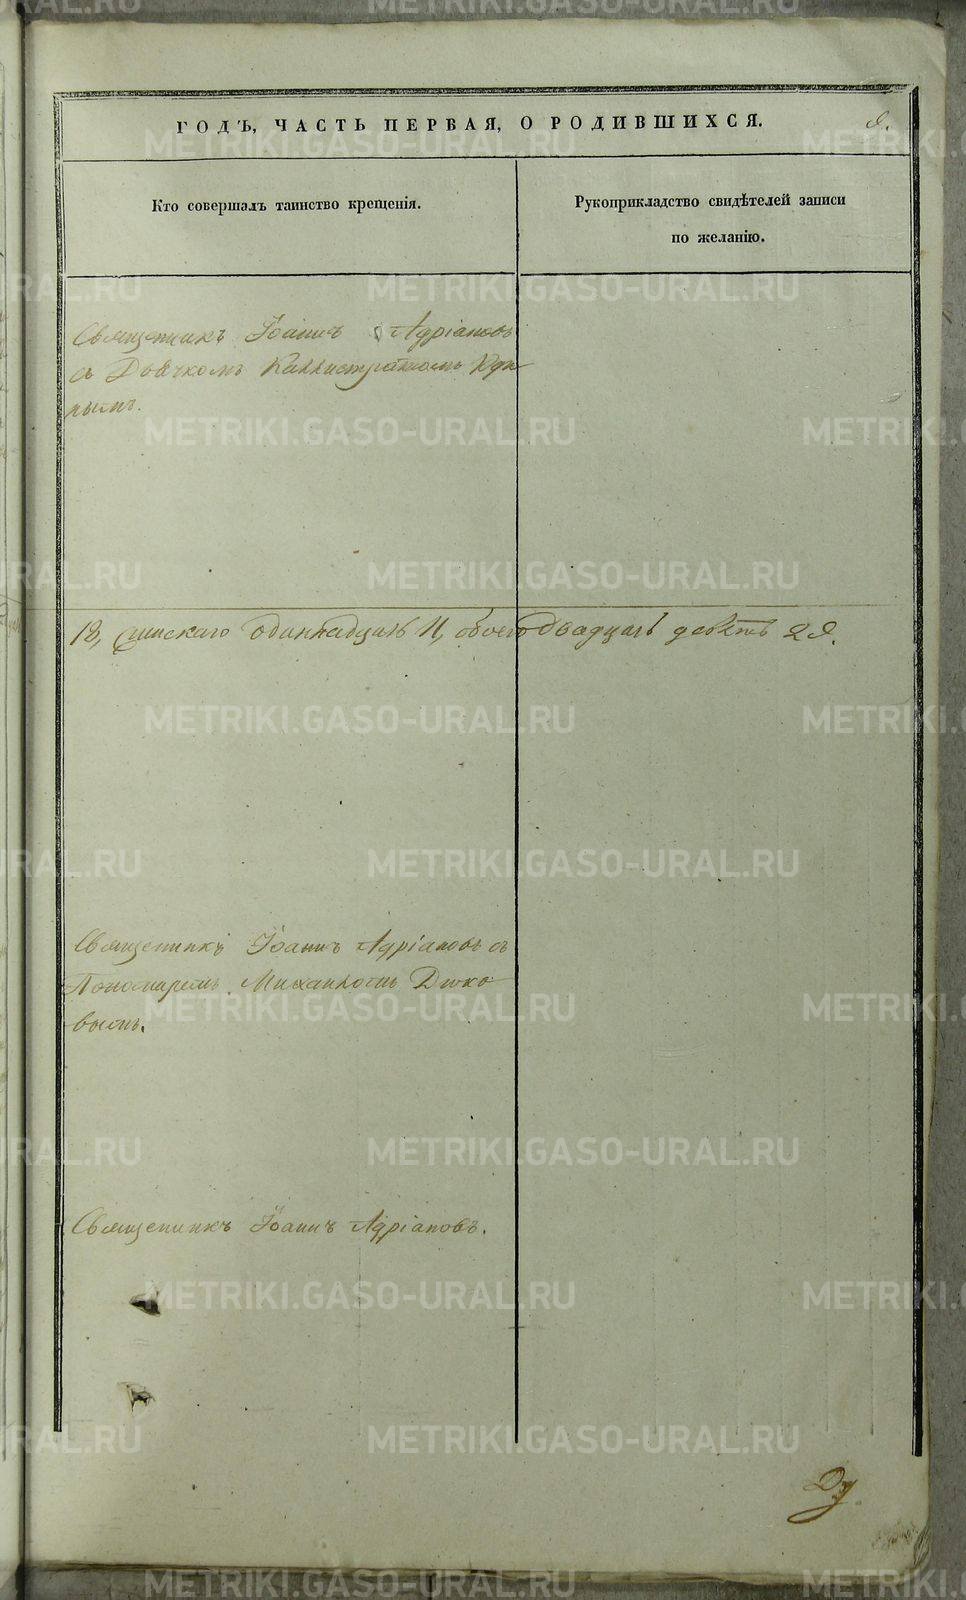 ГОДЪ, ЧАСТЬ ПЕРВАЯ, О РОДИВШИХСЯ.
9.
Кто совершалъ таинство крещенія.
Рукоприкладство свидѣтелей записи
по желанію.
Священникъ Іоаннъ Адріановъ
съ Дьячкомъ Каллистратомъ
18, женскаго одиннадцать 11, обоего двадцать девять 29.
Священникъ Іоаннъ Адріановъ съ
Пономаремъ Михаиломъ Дюко
вымъ.
Священникъ Іоаннъ Адріановъ.
METRIKI.GASO-URAL.RU